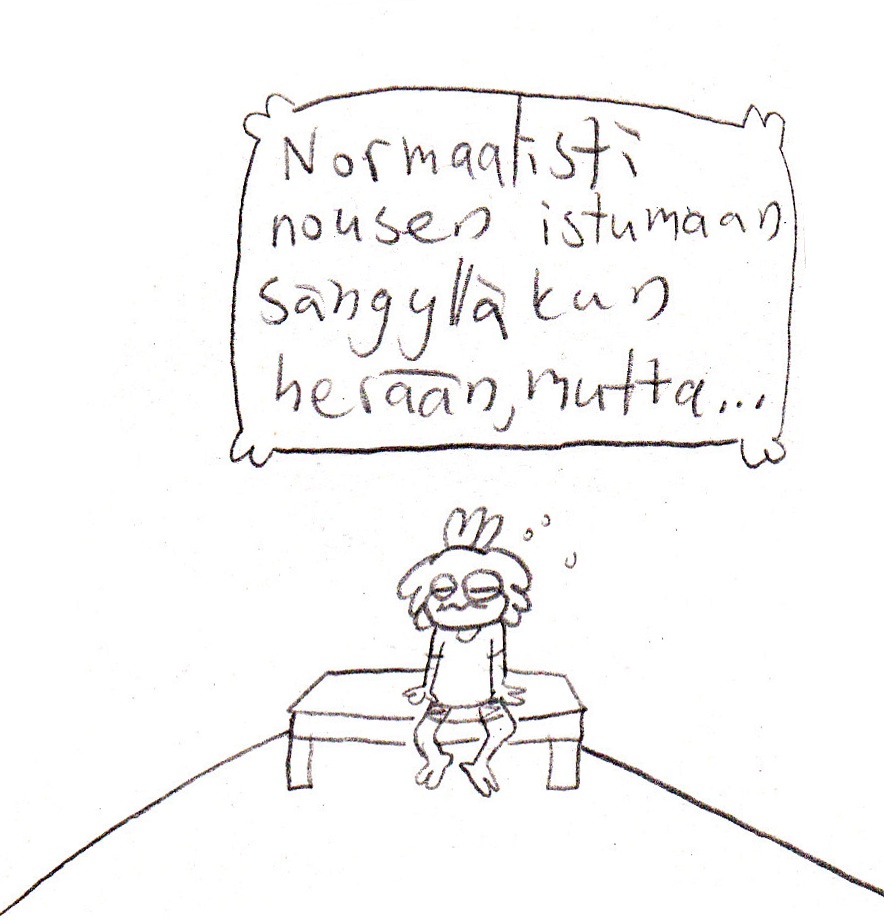 Normaalisti
nousen istumaan
sängyllä kun
herään, mutta...